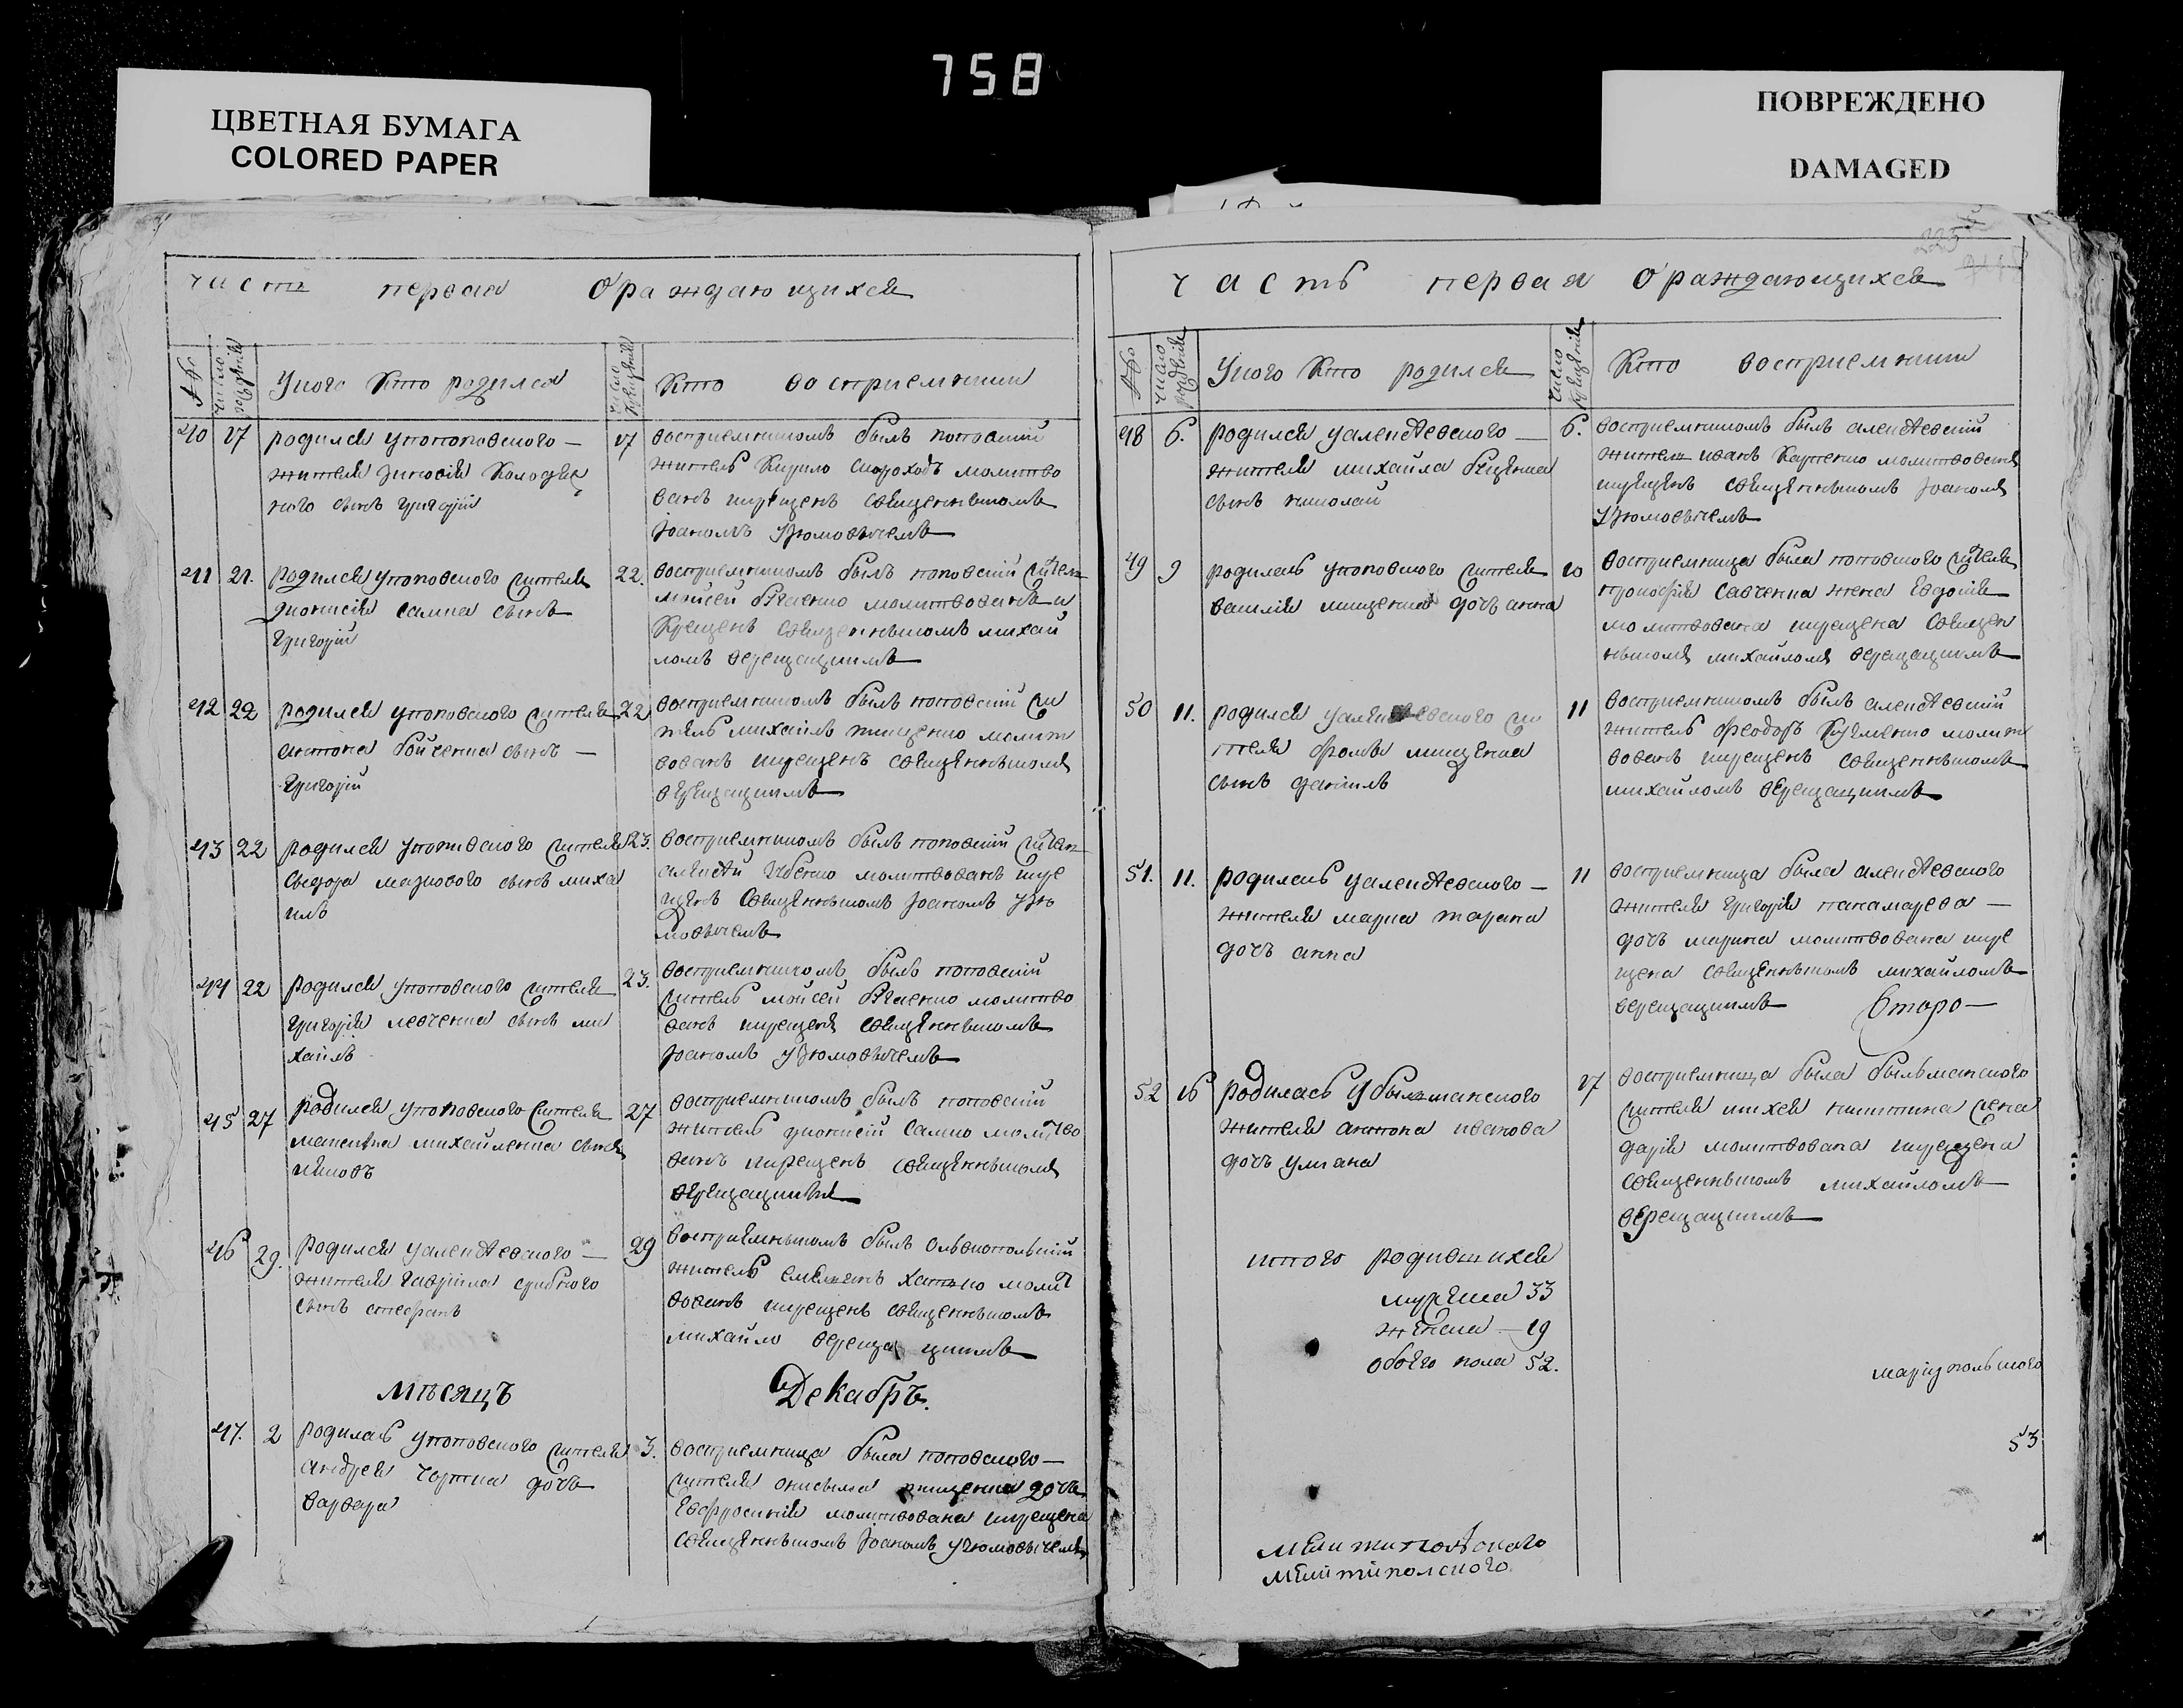 758
ЦВЕТНАЯ БУМАГА
COLORED PAPER
ПОВРЕЖДЕНО
DAMAGED
часть первая о раждающихся
№ число рождения
Уного Кто родился
число крещения
Кто восприемники
40 17 родился упоповского —
жителя Зиновія Колодяж
ного сынъ григорій
17 восприемникомъ былъ поповскій
житель Кирило скороходъ молитво
ванъ икрещенъ священникомъ
Іоаномъ
41 21. родился упоповского жителя
дионисія самка сынъ
григорій
22. восприемникомъ былъ поповскій житель
мойсей молитвованъ и
Крещенъ священникомъ михай
ломъ верещацкимъ
42 22 родился упоповского жителя
антона бойченка сынъ —
григорій
22 восприемникомъ былъ поповскій жи
тель михаилъ тищенко молит
вованъ икрещенъ священникомъ
верещацкимъ
43 22 родился упоповского жителя
сидора сынъ миха
илъ
23. восприемникомъ былъ поповскій житель
алексей молитвованъ икре
щенъ священникомъ Іоаномъ
44 22 родился упоповского жителя
григорія левченка сынъ ми
хаилъ
23. восприемникомъ былъ поповскій
житель мойсей молитво
ванъ икрещенъ священникомъ
Іоаномъ
45 27 родился упоповского жителя
михайленка сынъ
27 восприемникомъ былъ поповскій
житель дионисій самко молитво
ванъ икрещенъ священникомъ
верещацкимъ
46 29. родился уалексѣевского —
жителя гавріила
сынъ стефанъ
29 восприемникомъ былъ
житель молит
вованъ икрещенъ священникомъ
михайло верещацкимъ
мѣсяцъ Декабръ.
47. 2 родилась упоповского жителя
андрея чорнка дочь
варвара
3. восприемница была поповского —
жителя дочь
Евфросинія молитвована икрещена
священникомъ Іоаномъ
225
часть первая о раждающихся
№ число рождения
Уного Кто родился
число крещения
Кто восприемники
48 6. родился уалексѣевского —
жителя михайла биценка
сынъ николай
6. восприемникомъ былъ алексѣевскій
житель иванъ Карпенко молитвованъ
икрещенъ священникомъ Іоаномъ
49 9 родилась упоповского жителя
василія мищенка дочь анна
10 восприемница была поповского жителя
прокофія савченка жена Евдокія
молитвована икрещена священ
никомъ михайломъ верещацкимъ
50 11. родился уалексѣевского жи
теля фомы мищенка
сынъ даніилъ
11 восприемникомъ былъ алексѣевскій
житель феодоръ Кузменко молит
вованъ икрещенъ священникомъ
михайломъ верещацкимъ
51. 11. родилась уалексѣевского —
жителя марка тарана
дочь анна
11 восприемница была алексѣевского
жителя григорія панамарева —
дочь марина молитвована икре
щена священникомъ михайломъ
верещацкимъ
52 16 родилась убылманского
жителя антона иванова
дочь улиана
17 восприемница была бильманского
жителя михея никитина жена
дарія молитвована икрещена
священникомъ михайломъ
верещацкимъ
итого родившихся
мужеска 33
женска — 19
обоего пола 52.
маріупольского
53
мелитопольского
мелитополского